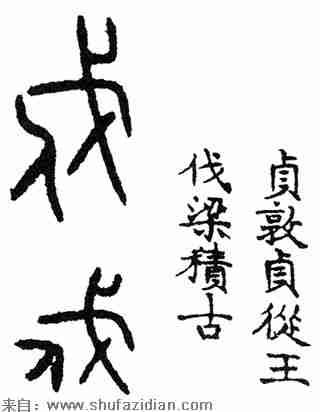 貞敦貞從王
伐梁積古
伐
伐
来自：www.shufazidian.com